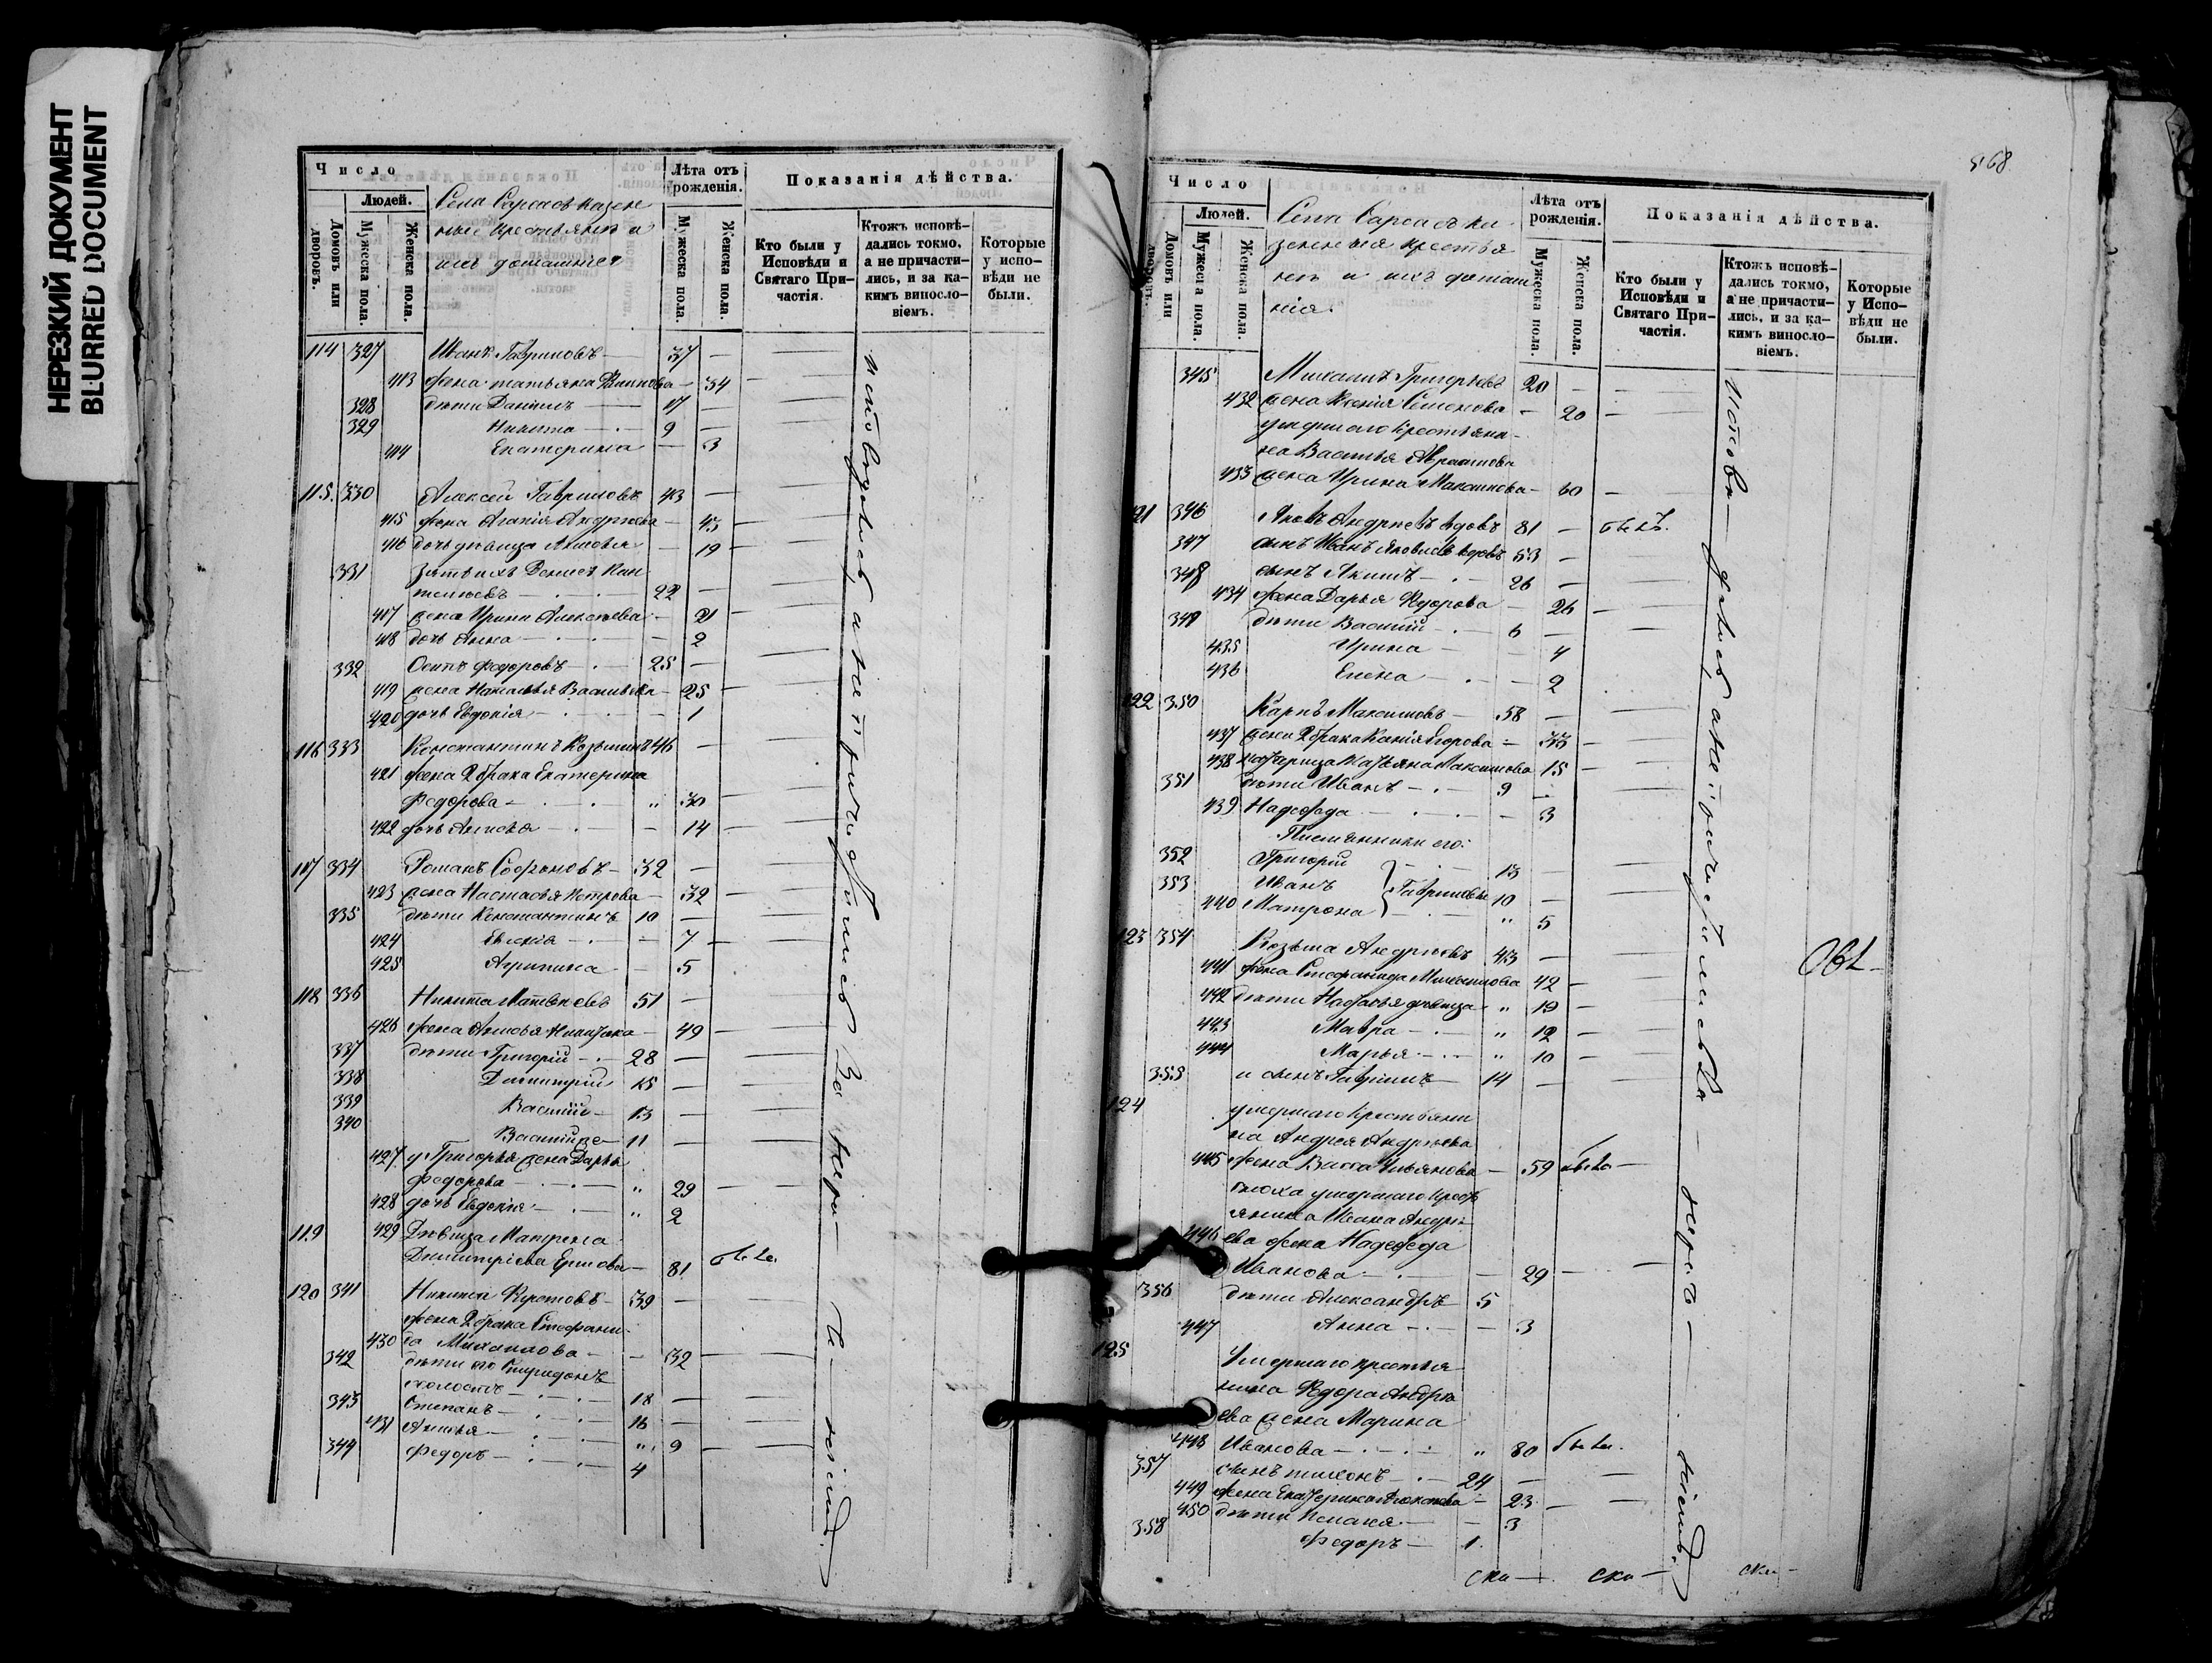 НЕРЕЗКИЙ ДОКУМЕНТ
BLURRED DOCUMENT
Число
Людей.
Домовъ или дворовъ.
Мужеска пола.
Женска пола.
Села казен
ные крестьяне и
ихъ домашніе
Лѣта отъ рожденія.
Мужеска пола.
Женска пола.
Показанія дѣйства.
Кто были у Исповѣди и Святаго Причастія.
Ктожъ исповѣдались токмо, а не причастились, и за какимъ винословіемъ.
Которые у исповѣди не были.
114 327 Иванъ Гавриловъ 37
413 жена Татьяна 34
328 дѣти Даніилъ 17
329 Никита 9
414 Екатерина 3
115 330 Алексей Гавриловъ 43
415 жена Агапія Андреева 43
416 дочь дѣвица Акилина 19
331 зять ихъ Денисъ Пан
телѣевъ 22
417 жена Ирина Алексѣева 21
418 дочь Анна 2
332 Осипъ Федоровъ 25
419 жена Наталья Васильева 25
420 дочь Евдокія 1
116 333 Константинъ Козьминъ 46
421 жена 2 брака Екатерина
Федорова " 30
422 дочь 14
117 334 Романъ Софроновъ 32
423 жена Настасья Петрова 32
335 дѣти Константинъ 10
424 Евгенія 7
425 Агрипина 5
118 336 Никита Матвѣевъ 51
426 жена 49
337 дѣти Григорій 28
338 Димитрій 15
339 Василій 13
340 Василій 11
427 у Григорья жена Дарья
Федорова " 29
428 дочь Евдокія " 2
119 429 Дѣвица Матрена
Димитріева 81 была
120 341 Никита 39
жена 2 брака Стефани
430 да Михаилова 32
342 дѣти его Спиридонъ
холостъ 18
343 Степанъ 16
431 " 9
344 Федоръ 4
исповѣдались, а не причастились
568
Число
Людей.
Домовъ или дворовъ.
Мужеска пола.
Женска пола.
Села ка
зенныя крестья
не и ихъ домаш
нія.
Лѣта отъ рожденія.
Мужеска пола.
Женска пола.
Показанія дѣйства.
Кто были у Исповѣди и Святаго Причастія.
Ктожъ исповѣдались токмо, а не причастились, и за какимъ винословіемъ.
Которые у Исповѣди не были.
345 Михаилъ Григорьевъ 20
432 жена Ксенія Семенова 20
умершаго крестьяни
на Василья Абрамова
433 жена Ирина Максимова 60
121 346 Яковъ Андреевъ вдовъ 81 былъ
347 сынъ Иванъ Яковлевъ вдовъ 53
348 сынъ Акимъ 26
434 жена Дарья Федорова 26
349 дѣти Василій 6
435 Ирина 4
436 Елена 2
122 350 Карпъ Максимовъ 58
437 жена 2 брака Ксенія Егорова 33
438 падчерица Татьяна Максимова 15
351 дѣти Иванъ 9
439 Надежда 3
Племянники его:
352 Григорій 13
353 Иванъ Гавриловы 10
440 Матрона " 5
123 354 Козьма Андреевъ 43
441 жена Стефанида Михаилова 42
442 дѣти Настасья дѣвица " 19
443 Мавра " 12
444 Марья " 10
355 и сынъ Гавріилъ 14
124 умершаго крестьяни
на Андрея Андреева
445 жена Васса 59 была
сноха умершаго кресть
янина Ивана Андре
446 ева жена Надежда
Иванова 29
356 дѣти Александръ 5
447 Анна 3
125 Умершаго крестья
нина Федора Андре
ева жена Марина
448 Иванова " 80 была
357 сынъ Тихонъ 24
449 жена Екатерина 23
450 дѣти 3
358 Федоръ 1
исповѣдались, а не причастились